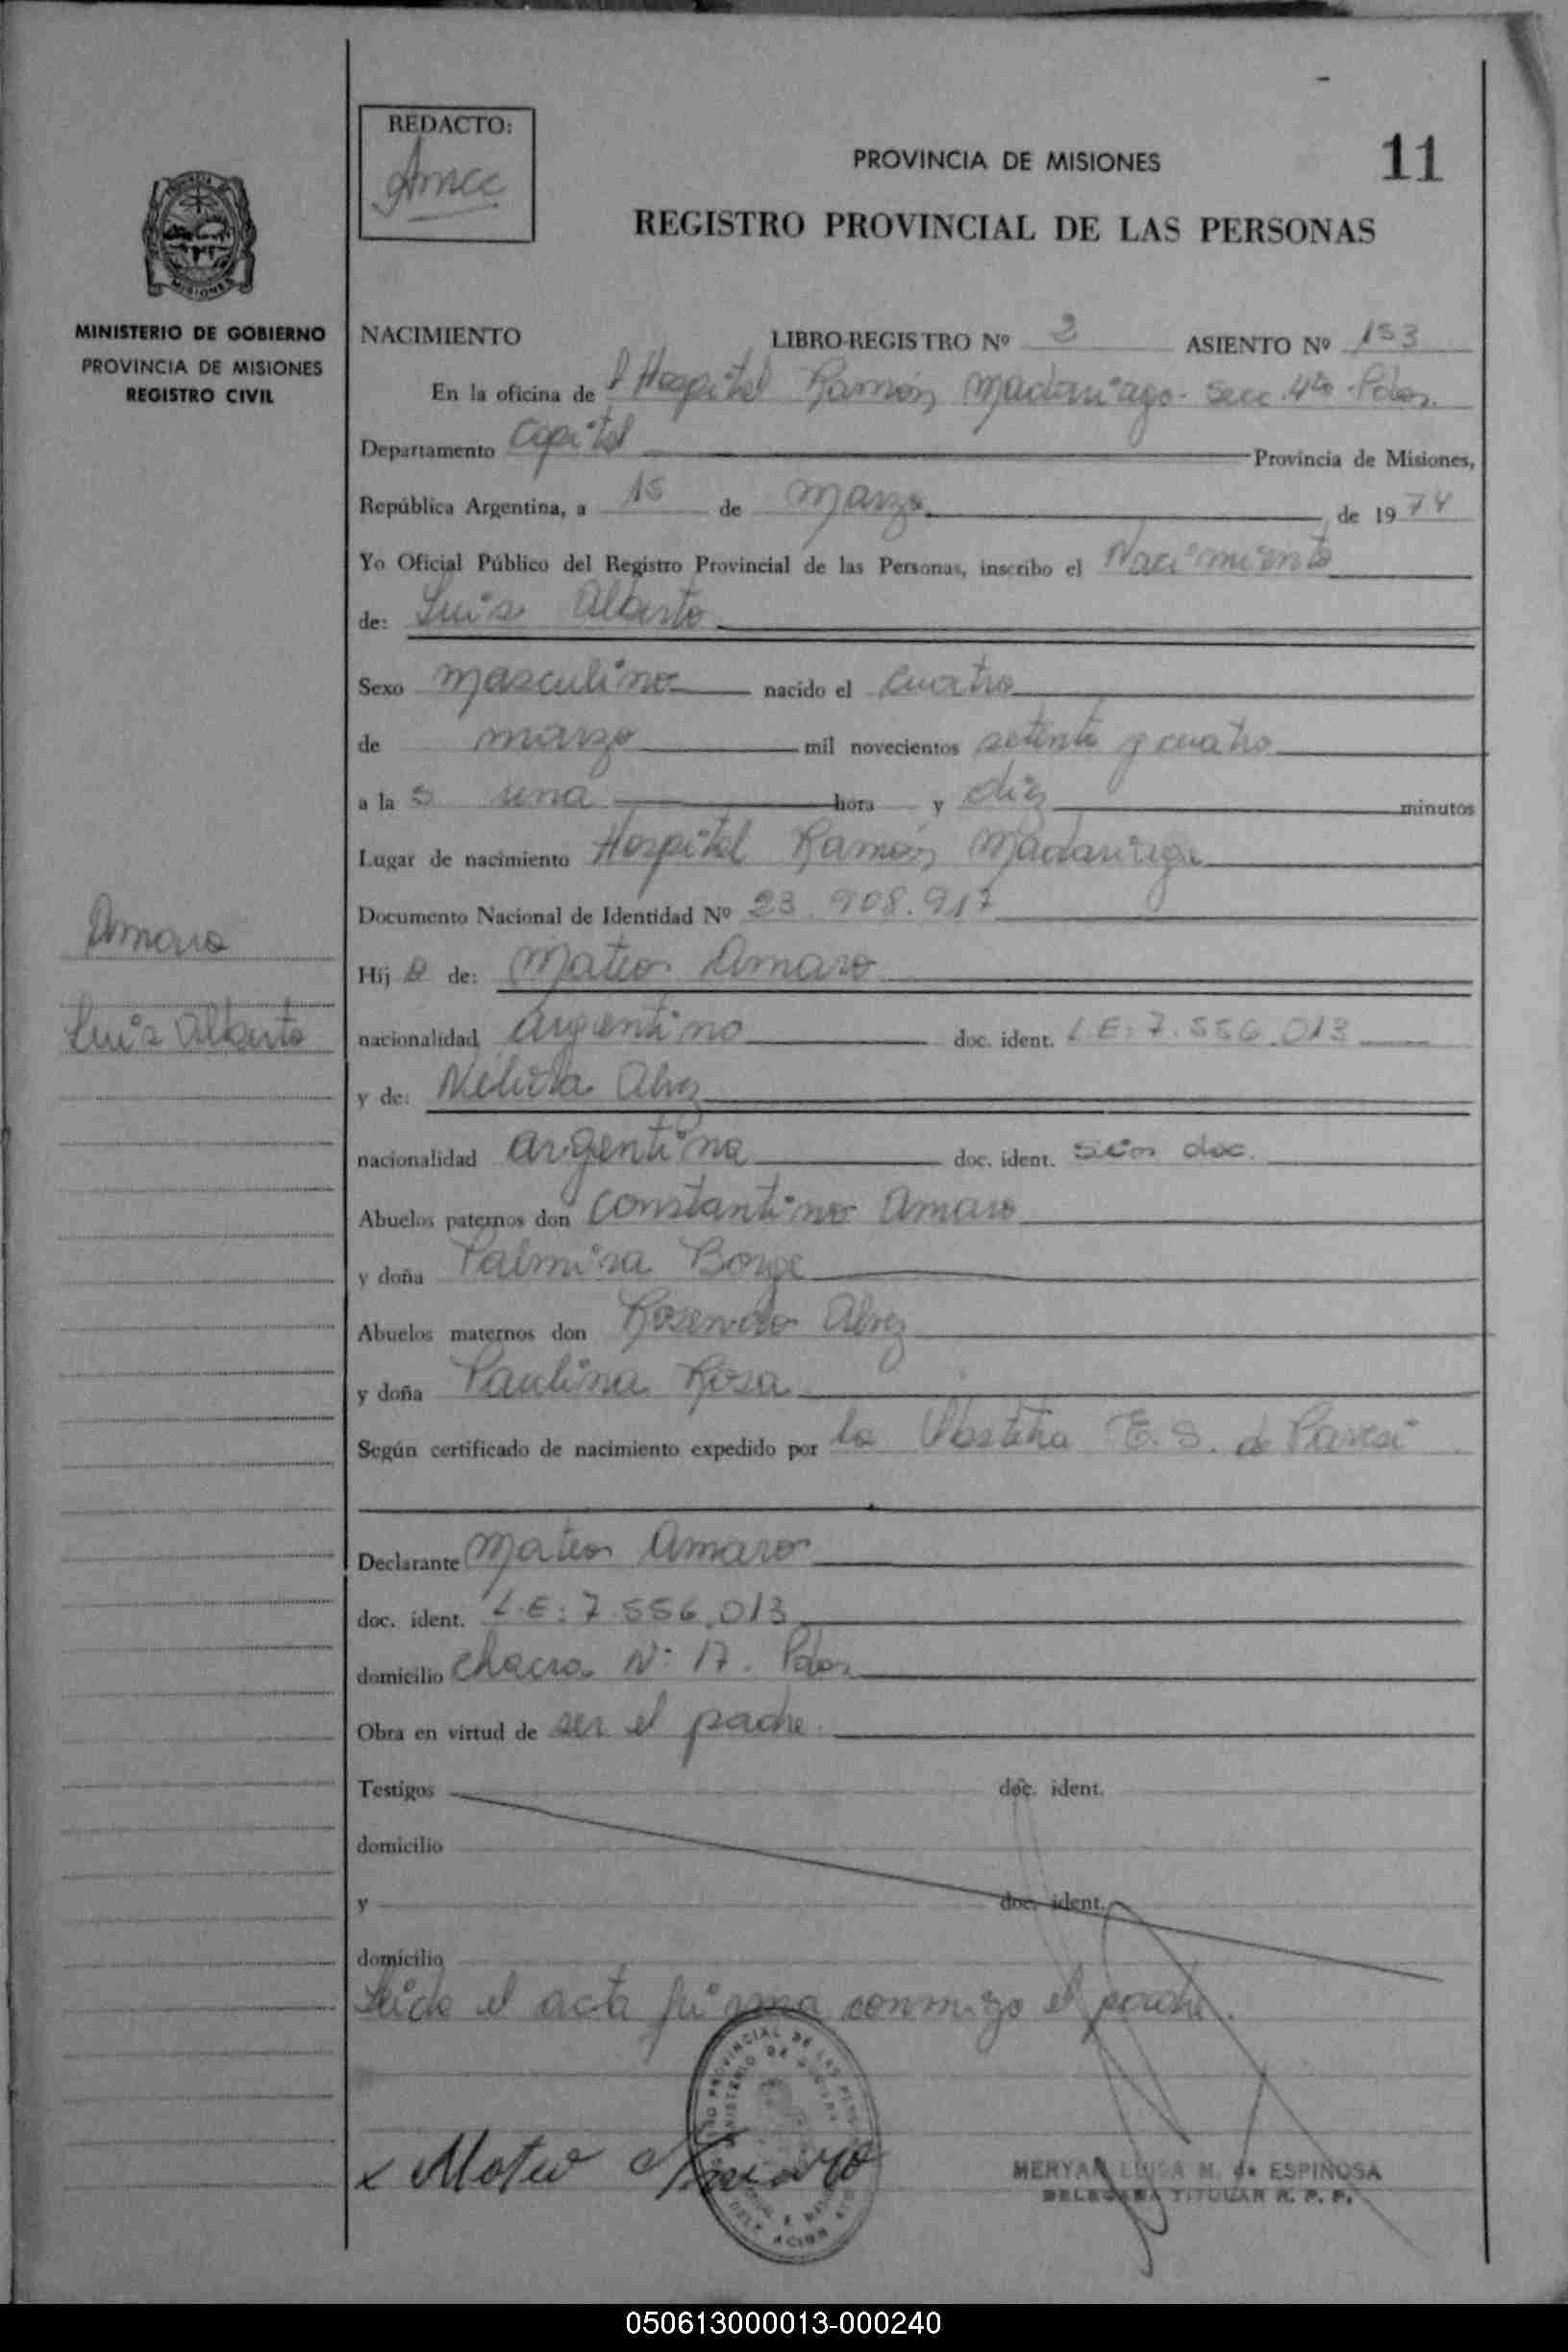 REDACTO:
PROVINCIA DE MISIONES
11
REGISTRO PROVINCIAL DE LAS PERSONAS
MINISTERIO DE GOBIERNO
PROVINCIA DE MISIONES
REGISTRO CIVIL
NACIMIENTO LIBRO-REGISTRO Nº ASIENTO Nº 153
En la oficina de Hospital Ramón Madariaga - Secc. 4ta
Departamento Capital Provincia de Misiones,
República Argentina, a 15 de Marzo de 1974
Yo Oficial Público del Registro Provincial de las Personas, inscribo el Nacimiento
de: Luis Alberto
Sexo masculino nacido el cuatro
de marzo mil novecientos setenta y cuatro
a la s una hora y diez minutos
Lugar de nacimiento Hospital Ramón Madariaga
Documento Nacional de Identidad Nº 23.908.917
Amaro
Hij o de: Mateo Amaro
Luis Alberto
nacionalidad argentino doc. ident. L.E: 7.556.013
y de: Nelida Alvez
nacionalidad argentina doc. ident. sin doc.
Abuelos paternos don Constantino Amaro
y doña Palmira Borge
Abuelos maternos don Rosendo Alvez
y doña Paulina Rosa
Según certificado de nacimiento expedido por la E. S. de
Declarante Mateo Amaro
doc. ident. L.E: 7.556.013
domicilio chacra Nº 17. Pdas
Obra en virtud de ser el padre.
Testigos doc. ident.
domicilio
y doc. ident.
domicilio
Leida el acta firma conmigo el padre.
x Mateo Amaro
MERYAN LUISA M. de ESPINOSA
DELEGADA TITULAR R. P. P.
050613000013-000240